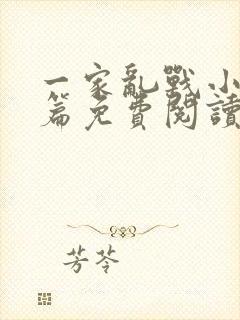 一家亂戰小
篇免費閱讀
芳苓